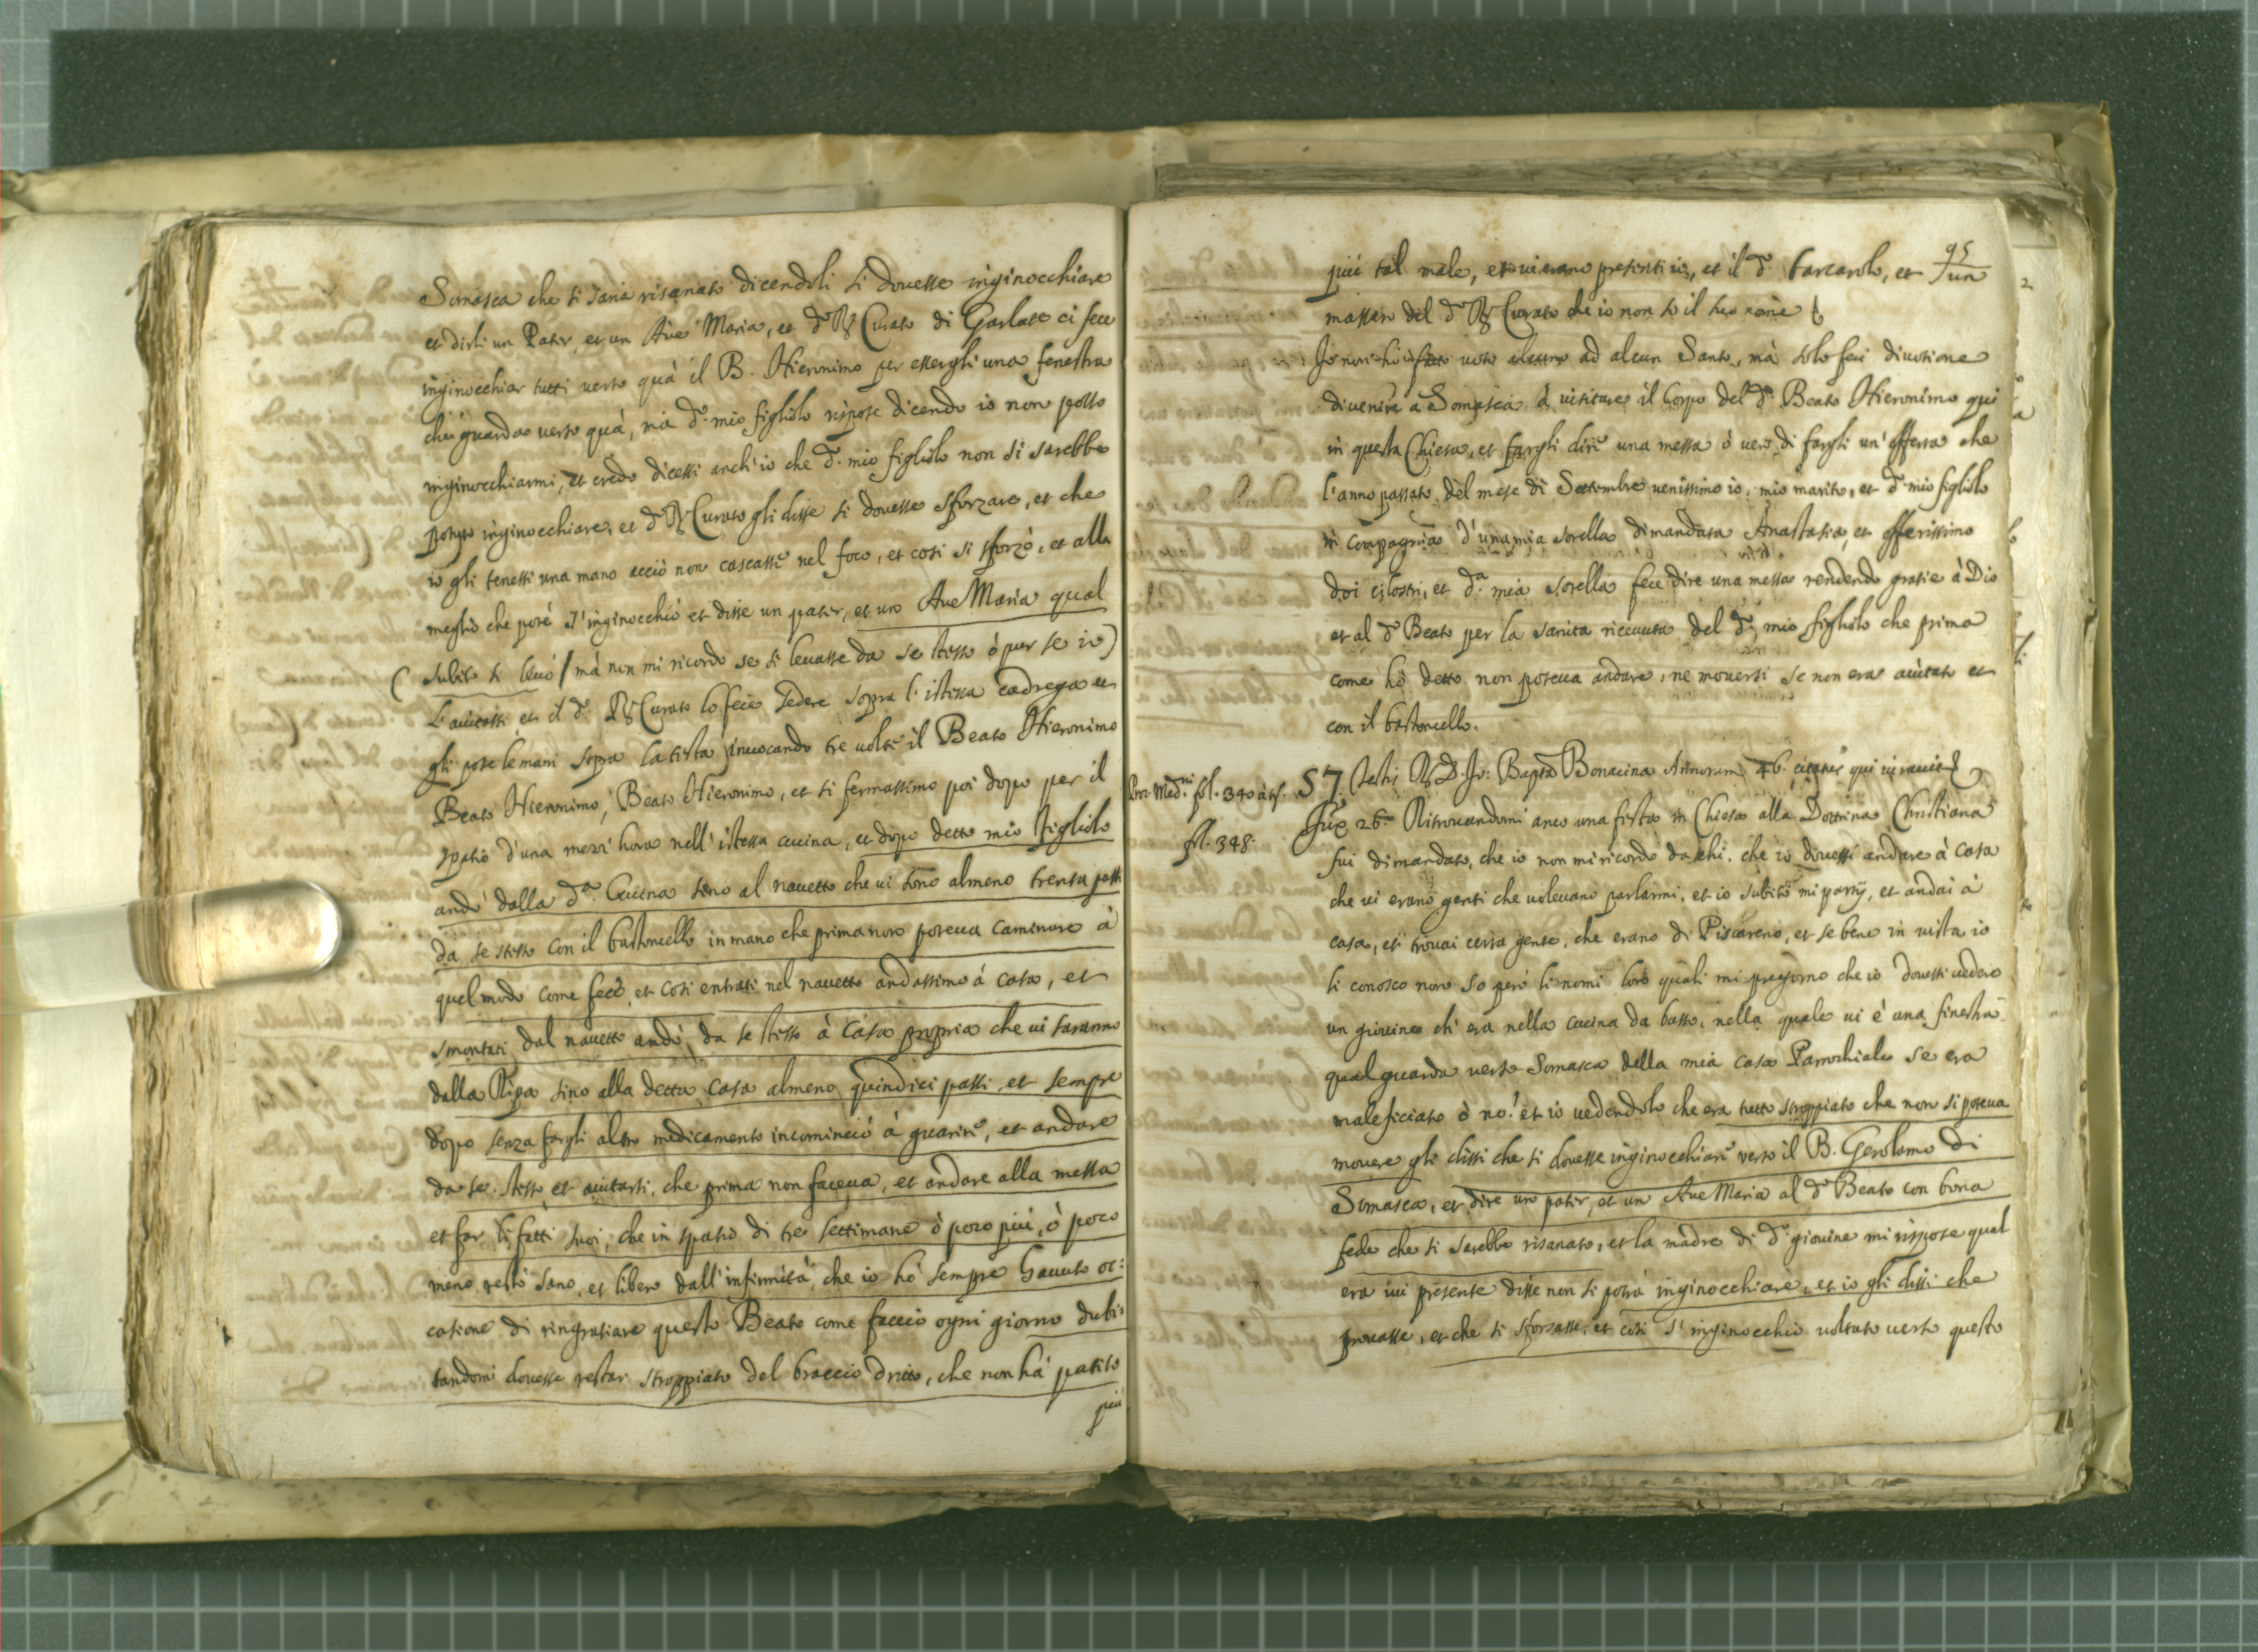 Somasca che si saria risanato dicendoli si douesse inginocchiare
et dirli un Pater, et un Aue Maria, et d.o R. Curato di Garlate ci fece
inginocchiar tutti verso quà il B. Hieronimo per esserli una fenestra
che guarda verso quà, mà d.o mio figliolo rispose dicendo io non posso
inginocchiarmi, et credo dicessi anch'io che d.o mio figliolo non si sarebbe
potuto inginocchiare, et d.o R. Curato gli disse si douesse sforzare, et che
io gli tenessi una mano acciò non cascasse nel foco, et così si sforzò, et alla
meglio che poté s'inginocchiò et disse un pater, et un Aue Maria qual
( subito si leuò / mà non mi ricordo se si leuasse da se stesso ò pur se io )
l'aiutassi, et il d.o R. Curato lo fece sedere sopra l'istessa cadrega et
gli pose le mani sopra la testa inuocando tre volte il Beato Hieronimo
Beato Hieronimo, Beato Hieronimo, et si fermassimo poi dopo per il
spatio d'una mezz'hora nell'istessa cucina, et dopo detto mio figliolo
andò dalla d.a Cucina sino al nauetto che vi sono almeno trenta passi
da se stesso con il bastoncello in mano che prima non poteua caminare à
quel modo come fece, et così entrati nel nauetto andassimo à casa, et
smontati dal nauetto andò da se stesso à Casa propria che vi saranno
dalla Ripa sino alla detta Casa almeno quindici passi, et sempre
dopo senza fargli altro medicamento incominciò à guarire, et andare
da se stesso et aiutarsi, che prima non faceua, et andare alla messa
et far li fatti suoi, che in spatio di tre settimane ò poco più, ò poco
meno restò sano, et libero dall'infirmità, che io hò sempre hauuto oc:
casione di ringratiare questo Beato come faccio ogni giorno dubi:
tandomi douesse restar stroppiato del braccio dritto, che non hà patito
più
95
più tal male, et vi erano presenti io, et il d.o barcarolo, et un
massaro del d.o R. Curato che io non sò il suo nome
Io non hò fatto voto alcuno ad alcun Santo, mà solo feci diuotione
di venire a Somasca à visitare il Corpo del d.o Beato Hieronimo qui
in questa Chiesa, et fargli dire una messa ò vero di fargli un'offerta che
l'anno passato del mese di Settembre venissimo io, mio marito, et d.o mio figliolo
in compagnia d'una mia sorella dimandata Anastasia, et offerissimo
doi cilostri, et d.a mia sorella fece dire una messa rendendo gratie à Dio
et al d.o Beato per la sanità riceuuta del d.o mio figliolo che prima
come hò detto non poteua andare, ne mouersi se non era aiutato et
con il bastoncello.
Proc. Med.ni fol. 340 à t.
57 Testis R. D. Jo: Bapta Bonacina Annorum 46. citatus qui iurauit
fol. 348.
Jux. 26. Ritrouandomi anco una festa in Chiesa alla Dottrina Christiana
fui dimandato, che io non mi ricordo da chi, che io douessi andare à casa
che vi erano genti che voleuano parlarmi, et io subito mi partij, et andai à
casa, et trouai certa gente, che erano di Piscareno, et se bene in vista io
li conosco non so però li nomi loro quali mi pregorno che io douessi vedere
un giouine ch'era nella cucina da basso, nella quale vi è una finestra
qual guarda verso Somasca della mia casa Parrochiale se era
maleficiato ò no! et io vedendolo che era tutto stroppiato che non si poteua
mouere gli dissi che si douesse inginocchiare verso il B. Gerolamo di
Somasca, et dire un pater, et un Aue Maria al d.o Beato con bona
fede che si sarebbe risanato, et la madre di d.o giouine mi rispose qual
era iui presente disse non si potrà inginocchiare, et io gli dissi che
prouasse, et che si sforzasse, et così s'inginocchiò voltato verso questo